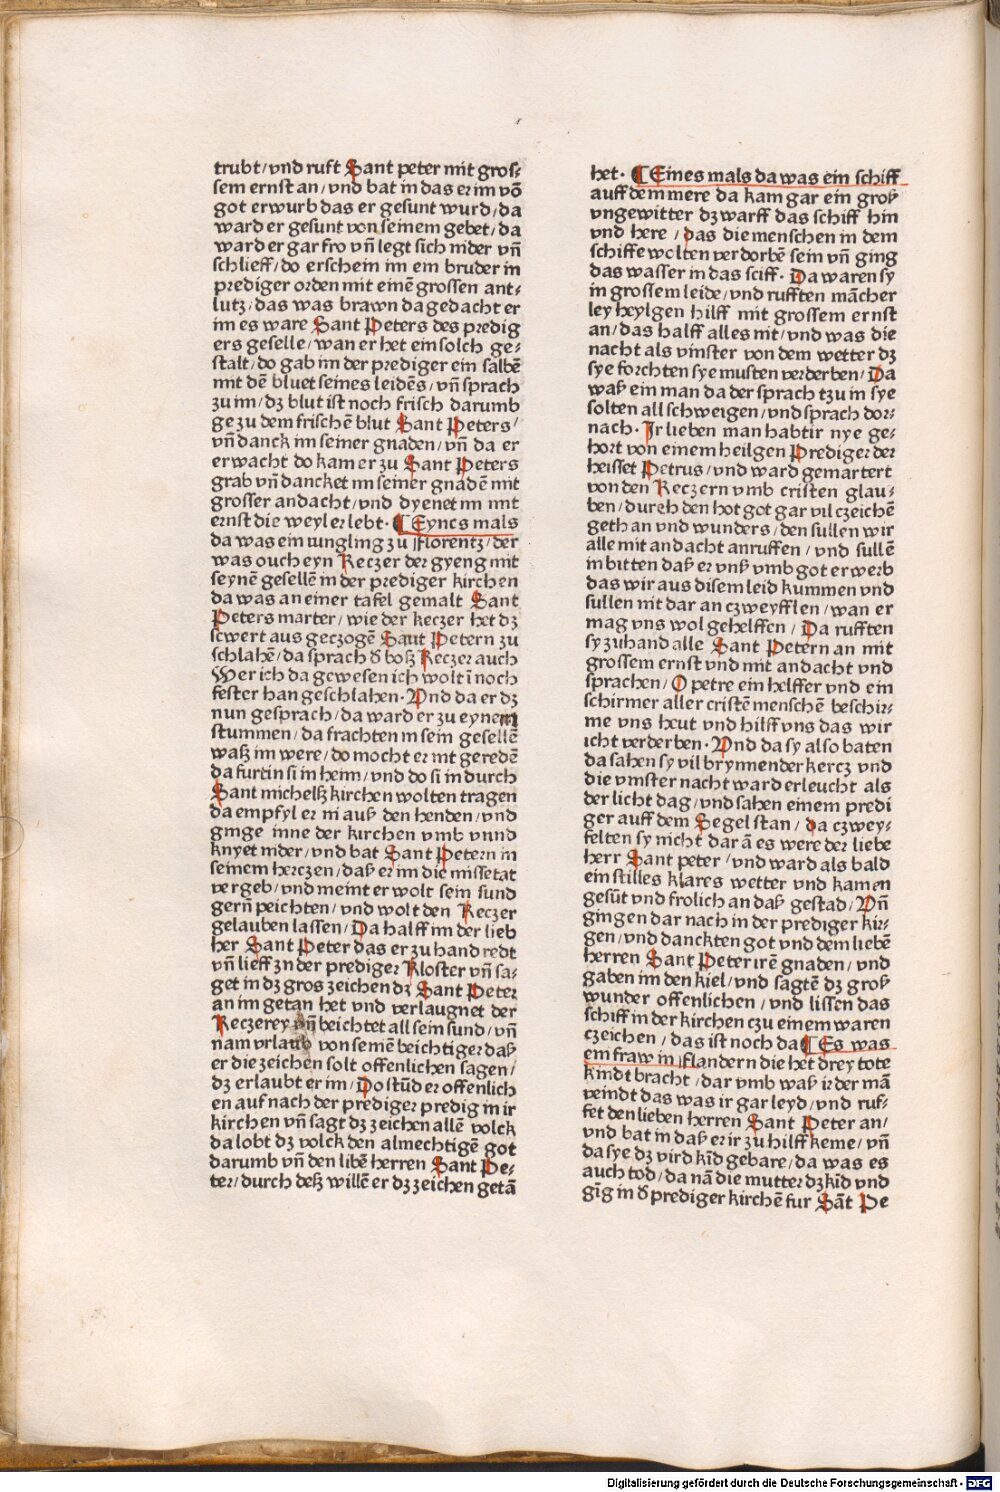 trubt/vnd ruft Sant peter mit gros⸗
sem ernst an/vnd bat in das er im võ
got erwurb das er gesunt wurd/da
ward er gesunt von seinem gebet/da
ward er gar fro vñ legt sich nider vñ
schlieff/do erschein im em bruder in
prediger orden mit einẽ grossen ant⸗
lutz/das was brawn da gedacht er
im es ware Sant Peters des predig
ers geselle/wan er het ein solch ge⸗
stalt/do gab im der prediger ein salbẽ
mit dẽ bluet seines leidẽs/vñ sprach
zu im/dz blut ist noch frisch darumb
ge zu dem frischẽ blut Sant Peters/
vñ danck im seiner gnaden/vñ da er
erwacht do kam er zu Sant Peters
grab vñ dancket im seiner gnadẽ mit
grosser andacht/vnd dyenet im mit
ernst die weyl er lebt. ¶ Eynes mals
da was ein iungling zu Florentz/der
was ouch eyn Keczer der gyeng mit
seynẽ gesellẽ in der prediger kirchen
da was an einer tafel gemalt Sant
Peters marter/wie der keczer het dz
scwert aus geczogẽ Sant Petern zu
schlahẽ/da sprach d̕ boß Keczer auch
Wer ich da gewesen ich wolt ĩ noch
fester han geschlahen. Vnd da er dz
nun gesprach/da ward er zu eynem
stummen/da frachten in sein gesellẽ
waß im were/do mocht er nit geredẽ
da furtin si in heim/vnd do si in durch
Sant michelß kirchen wolten tragen
da empfyl er in auß den henden/vnd
ginge inne der kirchen vmb vnnd
knyet nider/vnd bat Sant Petern in
seinem herczen/daß er im die missetat
vergeb/vnd meint er wolt sein sund
gern̄ peichten/vnd wolt den Keczer
gelauben lassen/Da half im der lieb
her Sant Peter das er zu hand redt
vñ lieff zn der prediger Kloster vñ sa⸗
get in dz gros zeichen dz Sant Peter
an im getan het vnd verlaugnet der
Keczerey vñ beichtet all sein sund/vñ
nam vrlaub von semẽ beichtiger daß
er die zeichen solt offenlichen sagen/
dz erlaubt er im/Do stũd er offenlich
en auf nach der prediger predig in ir
kirchen vñ sagt dz zeichen allẽ volck
da lobt dz volck den almechtigẽ got
darumb vñ den libẽ herren Sant Pe⸗
ter/durch deß willẽ er dz zeichen getã
het. ¶ Eines mals da was ein schiff
auff dem mere da kam gar ein groß
vngewitter dz warff das schiff hin
vnd here/das die menschen in dem
schiffe wolten verdorbẽ sein vñ ging
das wasser in das sciff. Da waren sy
in grossem leide/vnd rufften mãcher
ley heylgen hilff mit grossem ernst
an/das halff alles nit/vnd was die
nacht als vinster von dem wetter dz
sye forchten sye musten verderben/Da
waß ein man da der sprach tzu in sye
solten all schweigen/vnd sprach dor⸗
nach. Ir lieben man habt ir nye ge⸗
hort von einem heilgen Prediger der
heisset Petrus/vnd ward gemartert
von den Keczern vmb cristen glau⸗
ben/durch den hot got gar vil czeichẽ
gethan vnd wunders/den sullen wir
alle mit andacht anruffen/vnd sullẽ
in bitten daß er vnß vmb got erwerb
das wir aus disem leid kummen vnd
sullen nit dar an czweyfflen/wan er
mag vns wol gehelffen/Da rufften
sy zuhand alle Sant Petern an mit
grossem ernst vnd mit andacht vnd
sprachen/O petre ein helffer vnd ein
schirmer aller cristẽ menschẽ beschir⸗
me vns heut vnd hilff vns das wir
icht verderben. Vnd da sy also baten
da sahen sy vil brynnender kercz vnd
die vinster nacht ward erleucht als
der licht dag/vnd sahen einem predi
ger auff dem Segel stan/da czwey⸗
felten sy nicht dar ã es were der liebe
herr Sant peter/vnd ward als bald
ein stilles klares wetter vnd kamen
gesũt vnd frolich an daß gestad/Vñ
gingen dar nach in der prediger kir⸗
gen/vnd danckten got vnd dem liebẽ
herren Sant Peter irẽ gnaden/vnd
gaben im den kiel/vnd sagtẽ dz groß
wunder offenlichen/vnd lissen das
schiff in der kirchen czu einem waren
czeichen/das ist noch da ¶ Es was
em fraw in Flandern die het drey tote
kindt bracht/dar vmb waß ir der mã
veindt das was ir gar leyd/vnd ruf⸗
fet den lieben herren Sant Peter an/
vnd bat in daß er ir zu hilff keme/vñ
da sye dz vird kĩd gebare/da was es
auch tod/da nã die mutter dz kĩd vnd
gĩg in d̕ prediger kirchẽ fur Sãt Pe
Digitalisierung gefördert durch die Deutsche Forschungsgemeinschaft - DFG